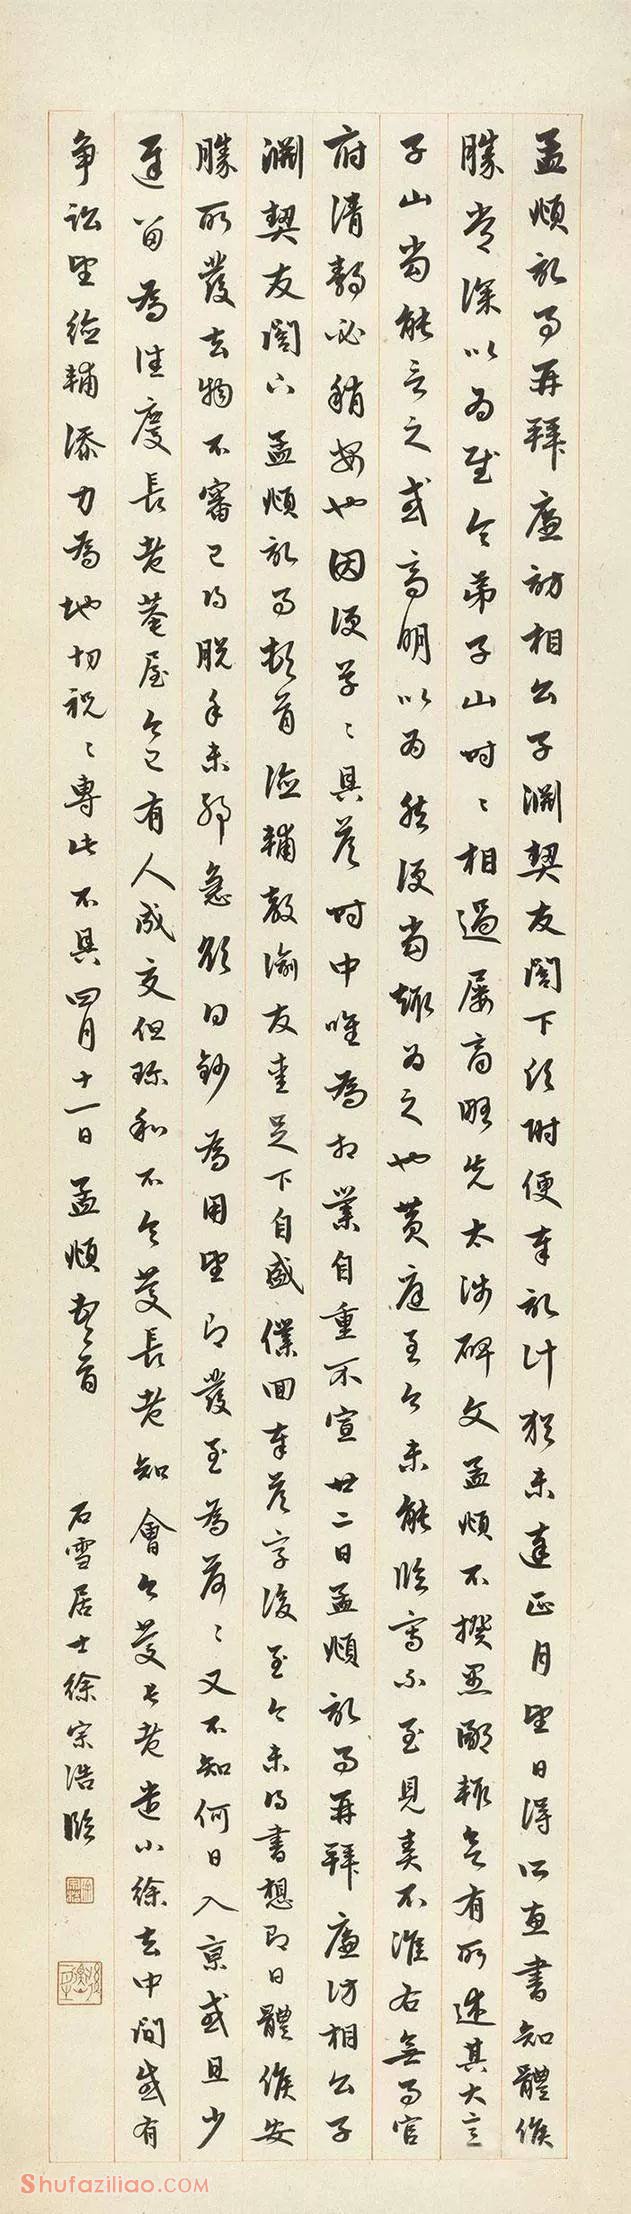 孟頫記事再拜廉訪相公子淵契友閣下孟附便奉記計程未達正月望日得所惠書知體候
勝常深以為慰令弟子山時〻相過屢言賢先太師碑文孟頫不揆愚鄙輒嘗有所述其大意
子山當能言之或高明以為然便當趣為之也黃庭至今未能臨寫不至見責不淮右無事官
府清静必稍安也因便草〻具答時中唯為相業自重不宣廿二日孟頫記事再拜廉訪相公子
淵契友閣下孟頫記事頓首德輔教諭友愛足下自盛僕回奉答字後至今未得書想即日體候安
勝所發去物不審已得脫手未耶急欲得鈔為用望即發至為荷〻又不知何日入京或且少
遲留為佳慶長老菴屋今已有人成交但珎和不令慶長老知會今慶長老遣小徐去中間或有
争訟望德輔添力為地切祝〻專此不具四月十一日孟頫頓首 石雪居士徐宗浩臨
Shufaziliao.com